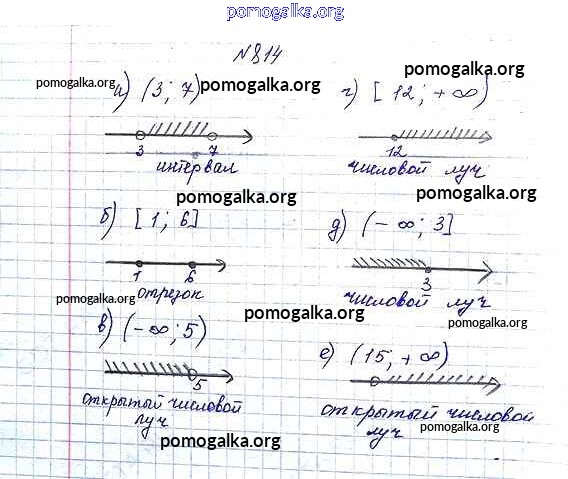 pomogalka.org
№ 814
а) (3; 7)
3 7
интервал
б) [1; 6]
1 6
отрезок
в) (-∞; 5)
5
открытый числовой
луч
г) [12; +∞)
12
числовой луч
д) (-∞; 3]
3
числовой луч
е) (15; +∞)
открытый числовой
луч
pomogalka.org
pomogalka.org
pomogalka.org
pomogalka.org
pomogalka.org
pomogalka.org
pomogalka.org
pomogalka.org
pomogalka.org
pomogalka.org
pomogalka.org
pomogalka.org